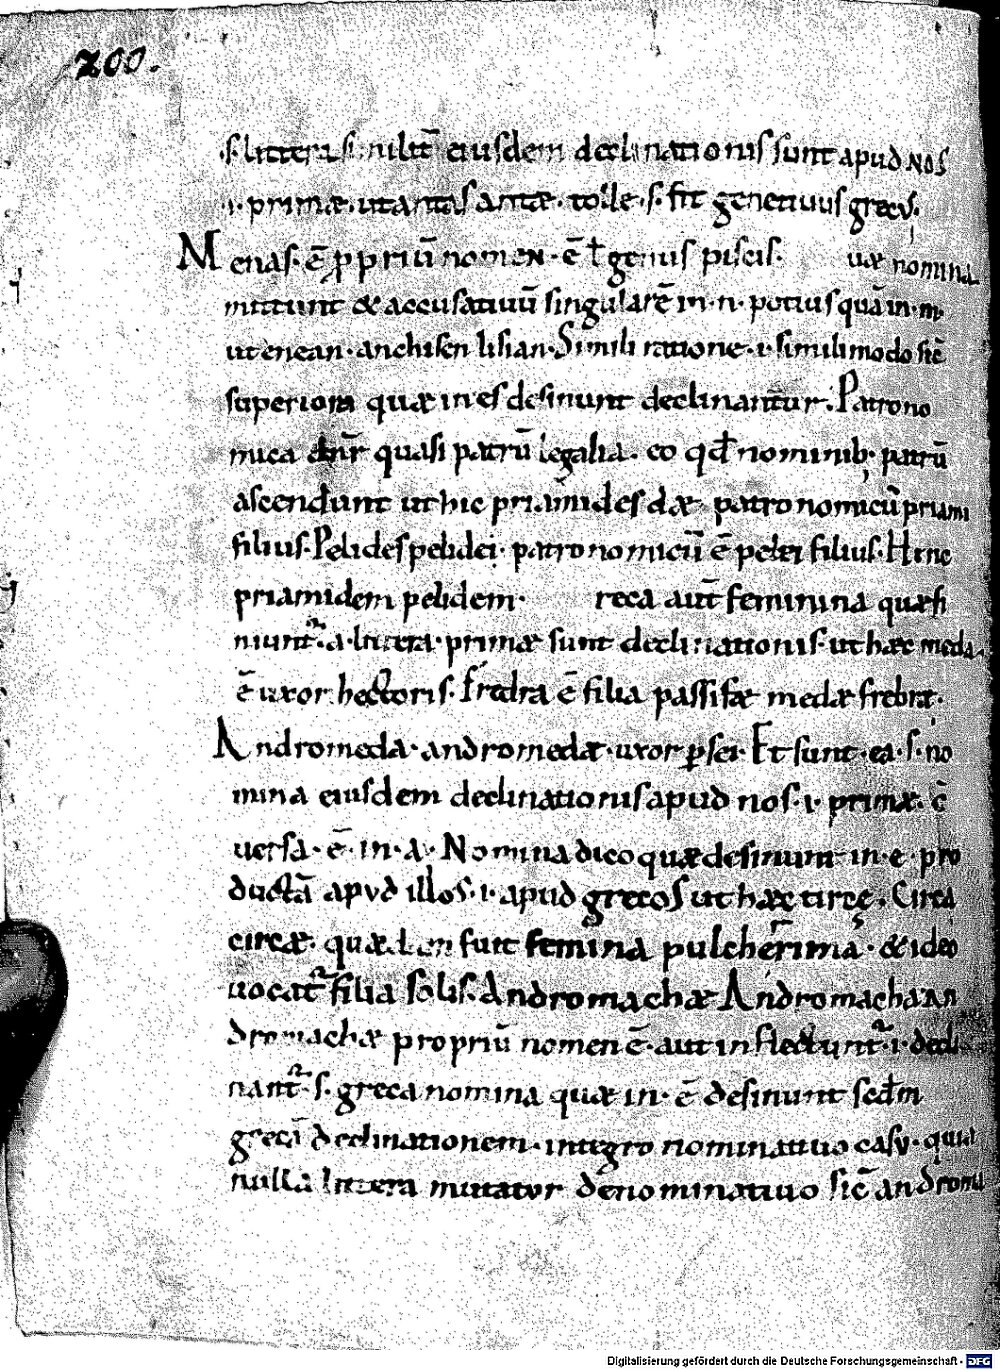 200.
·s· littera similit̄ eiusdem declinationis sunt apud nos
·i· primæ· ut antas antæ· tolle ·s· fit genetiuus grecus.
Menas· ē ꝓpriū nomen· ē ł genus piscis. uæ nomina
mittunt & accusatiuū singularē in ·n· potius quā in ·m·
ut enean· anchisen lisian· Simili ratione ·i· simili modo sic̄
superiora quæ in es desinunt declinant̄ur· Patrono
mica dn̄r quasi patrū legalia· eo qđ nominib; patrū
ascendunt ut hic priamides dæ patronomicū priami
filius· Pelides pelidei· patronomicū ē pelei filius· Hinc
priamidem pelidem· reca aut̄ feminina quæ fi
niunt̄ ·a· littera· primæ sunt declinationis· ut hæc meda·
ē uxor hectoris· Fredra ē filia passifæ medæ frebræ·
Andromeda· andromedæ· uxor ꝑsei· Et sunt ·ea· ·s· no
mina eiusdem declinationis apud nos ·i· primæ· c̄
uersa· ē· in ·a· Nomina dico quæ desinunt in ·e· pro
ductā apud illos ·i· apud grecos ut hæc circe· Circa
circæ· quæ fuit femina pulcherrima· & ideo
uocat̄ filia solis· Andromachæ Andromacha an
dromachæ propriū nomen ē· aut inflectunt̄ ·i· decli
nant̄ ·s· greca nomina quæ in ·ē desinunt scđm
grecā declinationem· integro nominatiuo casu· quia
nulla littera mutator de nominatiuo sic̄ androma
Digitalisierung gefördert durch die Deutsche Forschungsgemeinschaft - DFG